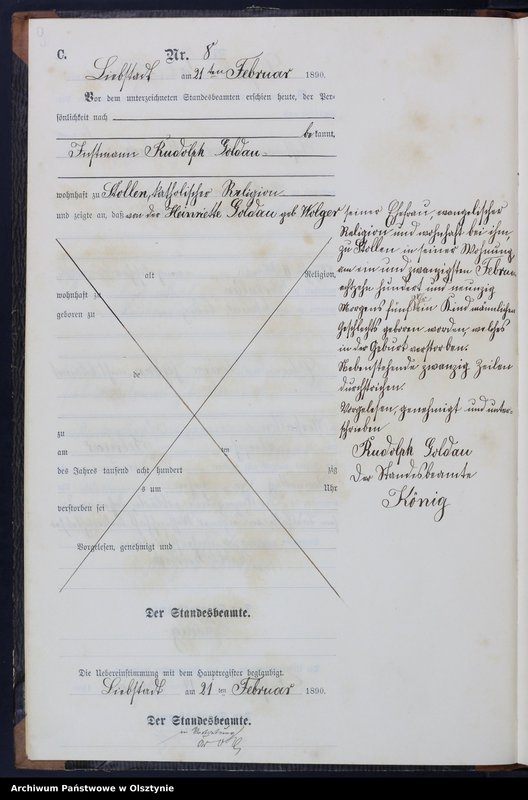 C.
Nr. 8
Liebstadt am 21ten Februar 1890.
Vor dem unterzeichneten Standesbeamten erschien heute, der Per-
sönlichkeit nach
bekannt,
Instmann Rudolph Goldau
wohnhaft zu Stollen, katholischer Religion
und zeigte an, daß von der Heinriette Goldau geb. Wolger
seiner Ehefrau, evangelischer
Religion und wohnhaft bei ihm,
zu Stollen in seiner Wohnung,
am ein und zwanzigsten Februar
achtzehn hundert und neunzig
Morgens fünf Uhr ein Kind männlichen
Geschlechts geboren worden, welches
in der Geburt verstorben.
Nebenstehende zwanzig Zeilen
durchstrichen.
Vorgelesen, genehmigt und unter-
schrieben
Rudolph Goldau
Der Standesbeamte
König
alt Religion,
wohnhaft zu
geboren zu
de
zu
am ten
des Jahres tausend acht hundert zig
s um Uhr
verstorben sei
Vorgelesen, genehmigt und
Der Standesbeamte.
Die Uebereinstimmung mit dem Hauptregister beglaubigt.
Liebstadt am 21ten Februar 1890.
Der Standesbeamte.
in Vertretung
Archiwum Państwowe w Olsztynie